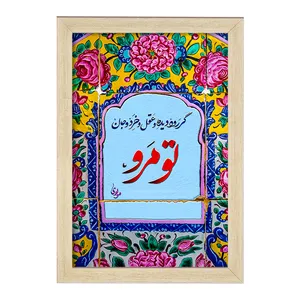 گر رود دیده و عقل و خرد و جان
تو مرو